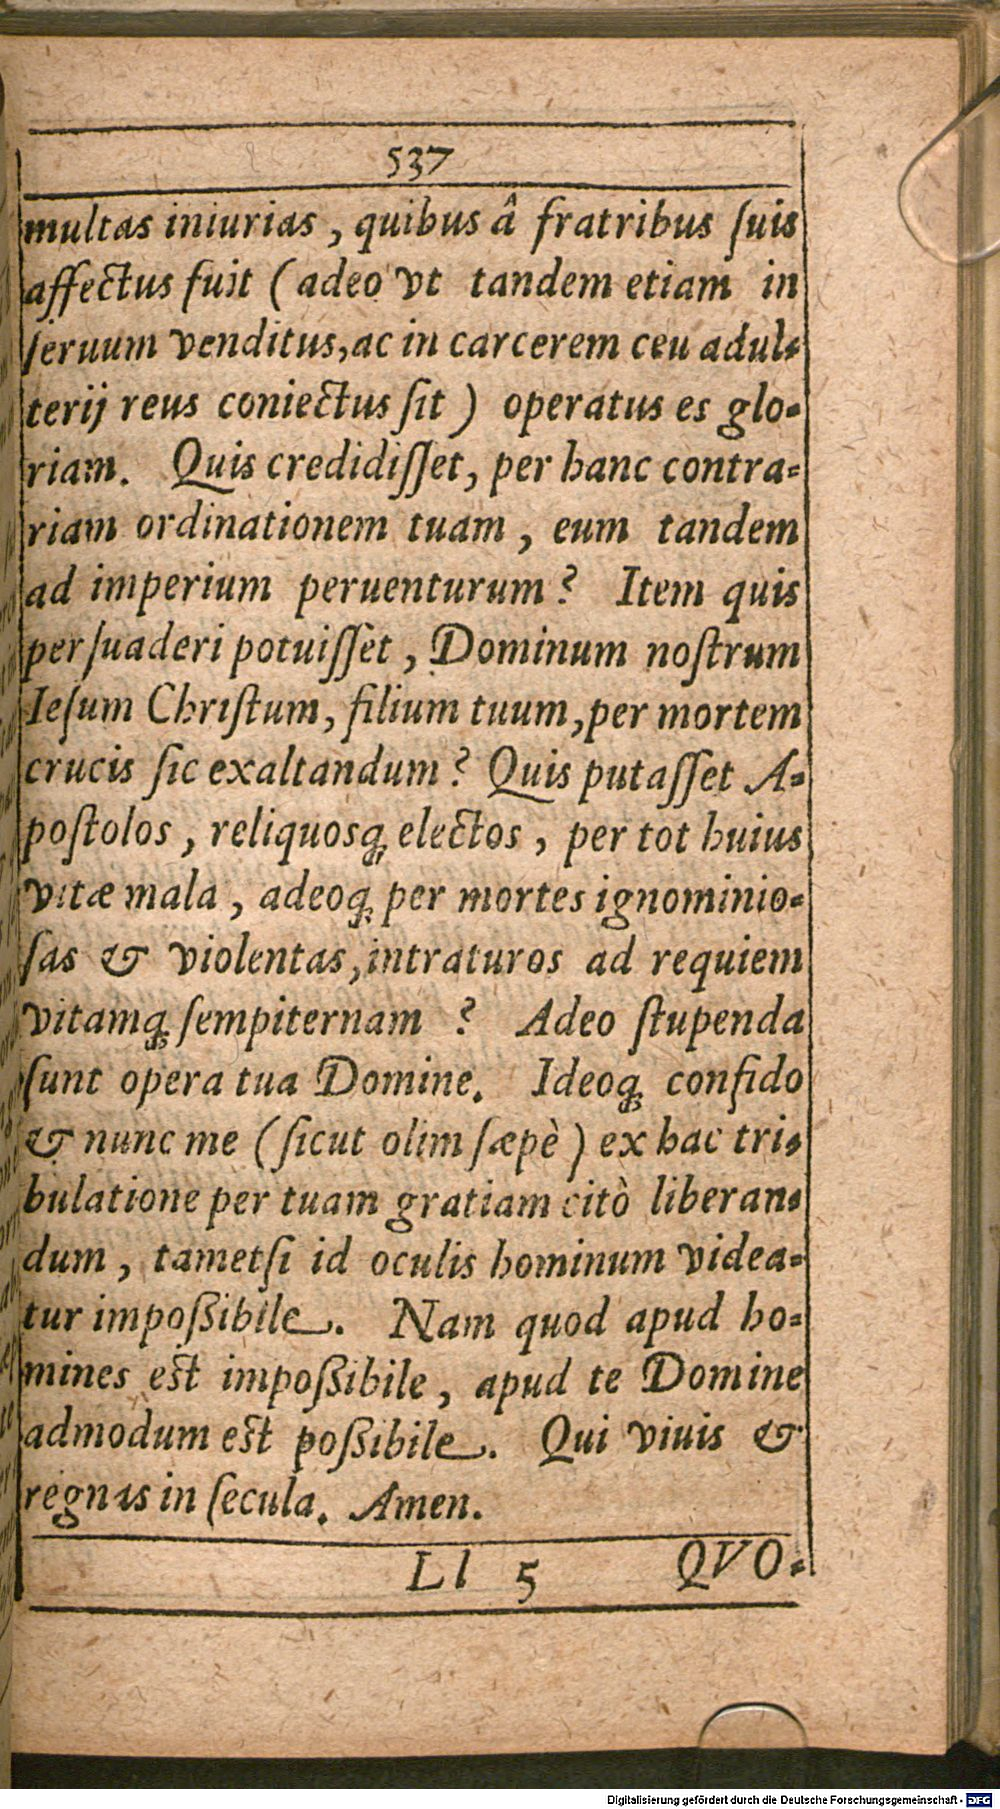 537
multas iniurias, quibus â fratribus ſuis
affectus fuit (adeo vt tandem etiam in
ſeruum venditus, ac in carcerem ceu adul-
terij reus coniectus ſit) operatus es glo-
riam. Quis credidiſſet, per hanc contra-
riam ordinationem tuam, eum tandem
ad imperium peruenturum? Item quis
perſuaderi potuiſſèt, Dominum noſtrum
Ieſum Chriſtum, filium tuum, per mortem
crucis ſic exaltandum? Quis putaſſet A-
poſtolos, reliquosq́; electos, per tot huius
vitæ mala, adeoq́; per mortes ignominio-
ſas & violentas, intraturos ad requiem
vitamq́; ſempiternam? Adeo ſtupenda
ſunt opera tua Domine. Ideoq́; confido
& nunc me (ſicut olim ſæpè) ex hac tri-
bulatione per tuam gratiam citò liberan-
dum, tametſi id oculis hominum videa-
tur impoßibile. Nam quod apud ho-
mines eſt impoßibile, apud te Domine
admodum eſt poßibile. Qui viuis &
regnas in ſecula. Amen.
Ll 5 QVO-
Digitalisierung gefördert durch die Deutsche Forschungsgemeinschaft - DFG